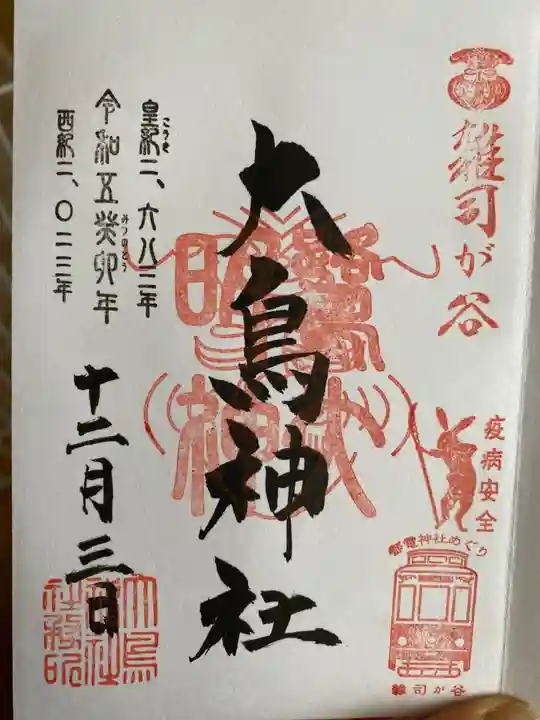 雑司が谷
疫病安全
都電神社めぐり
雑司が谷
大鳥神社
皇紀二、六八三年
こうき
令和五癸卯年
みづのとう
西紀二、〇二三年
十二月三日
大鳥
神社
社務所